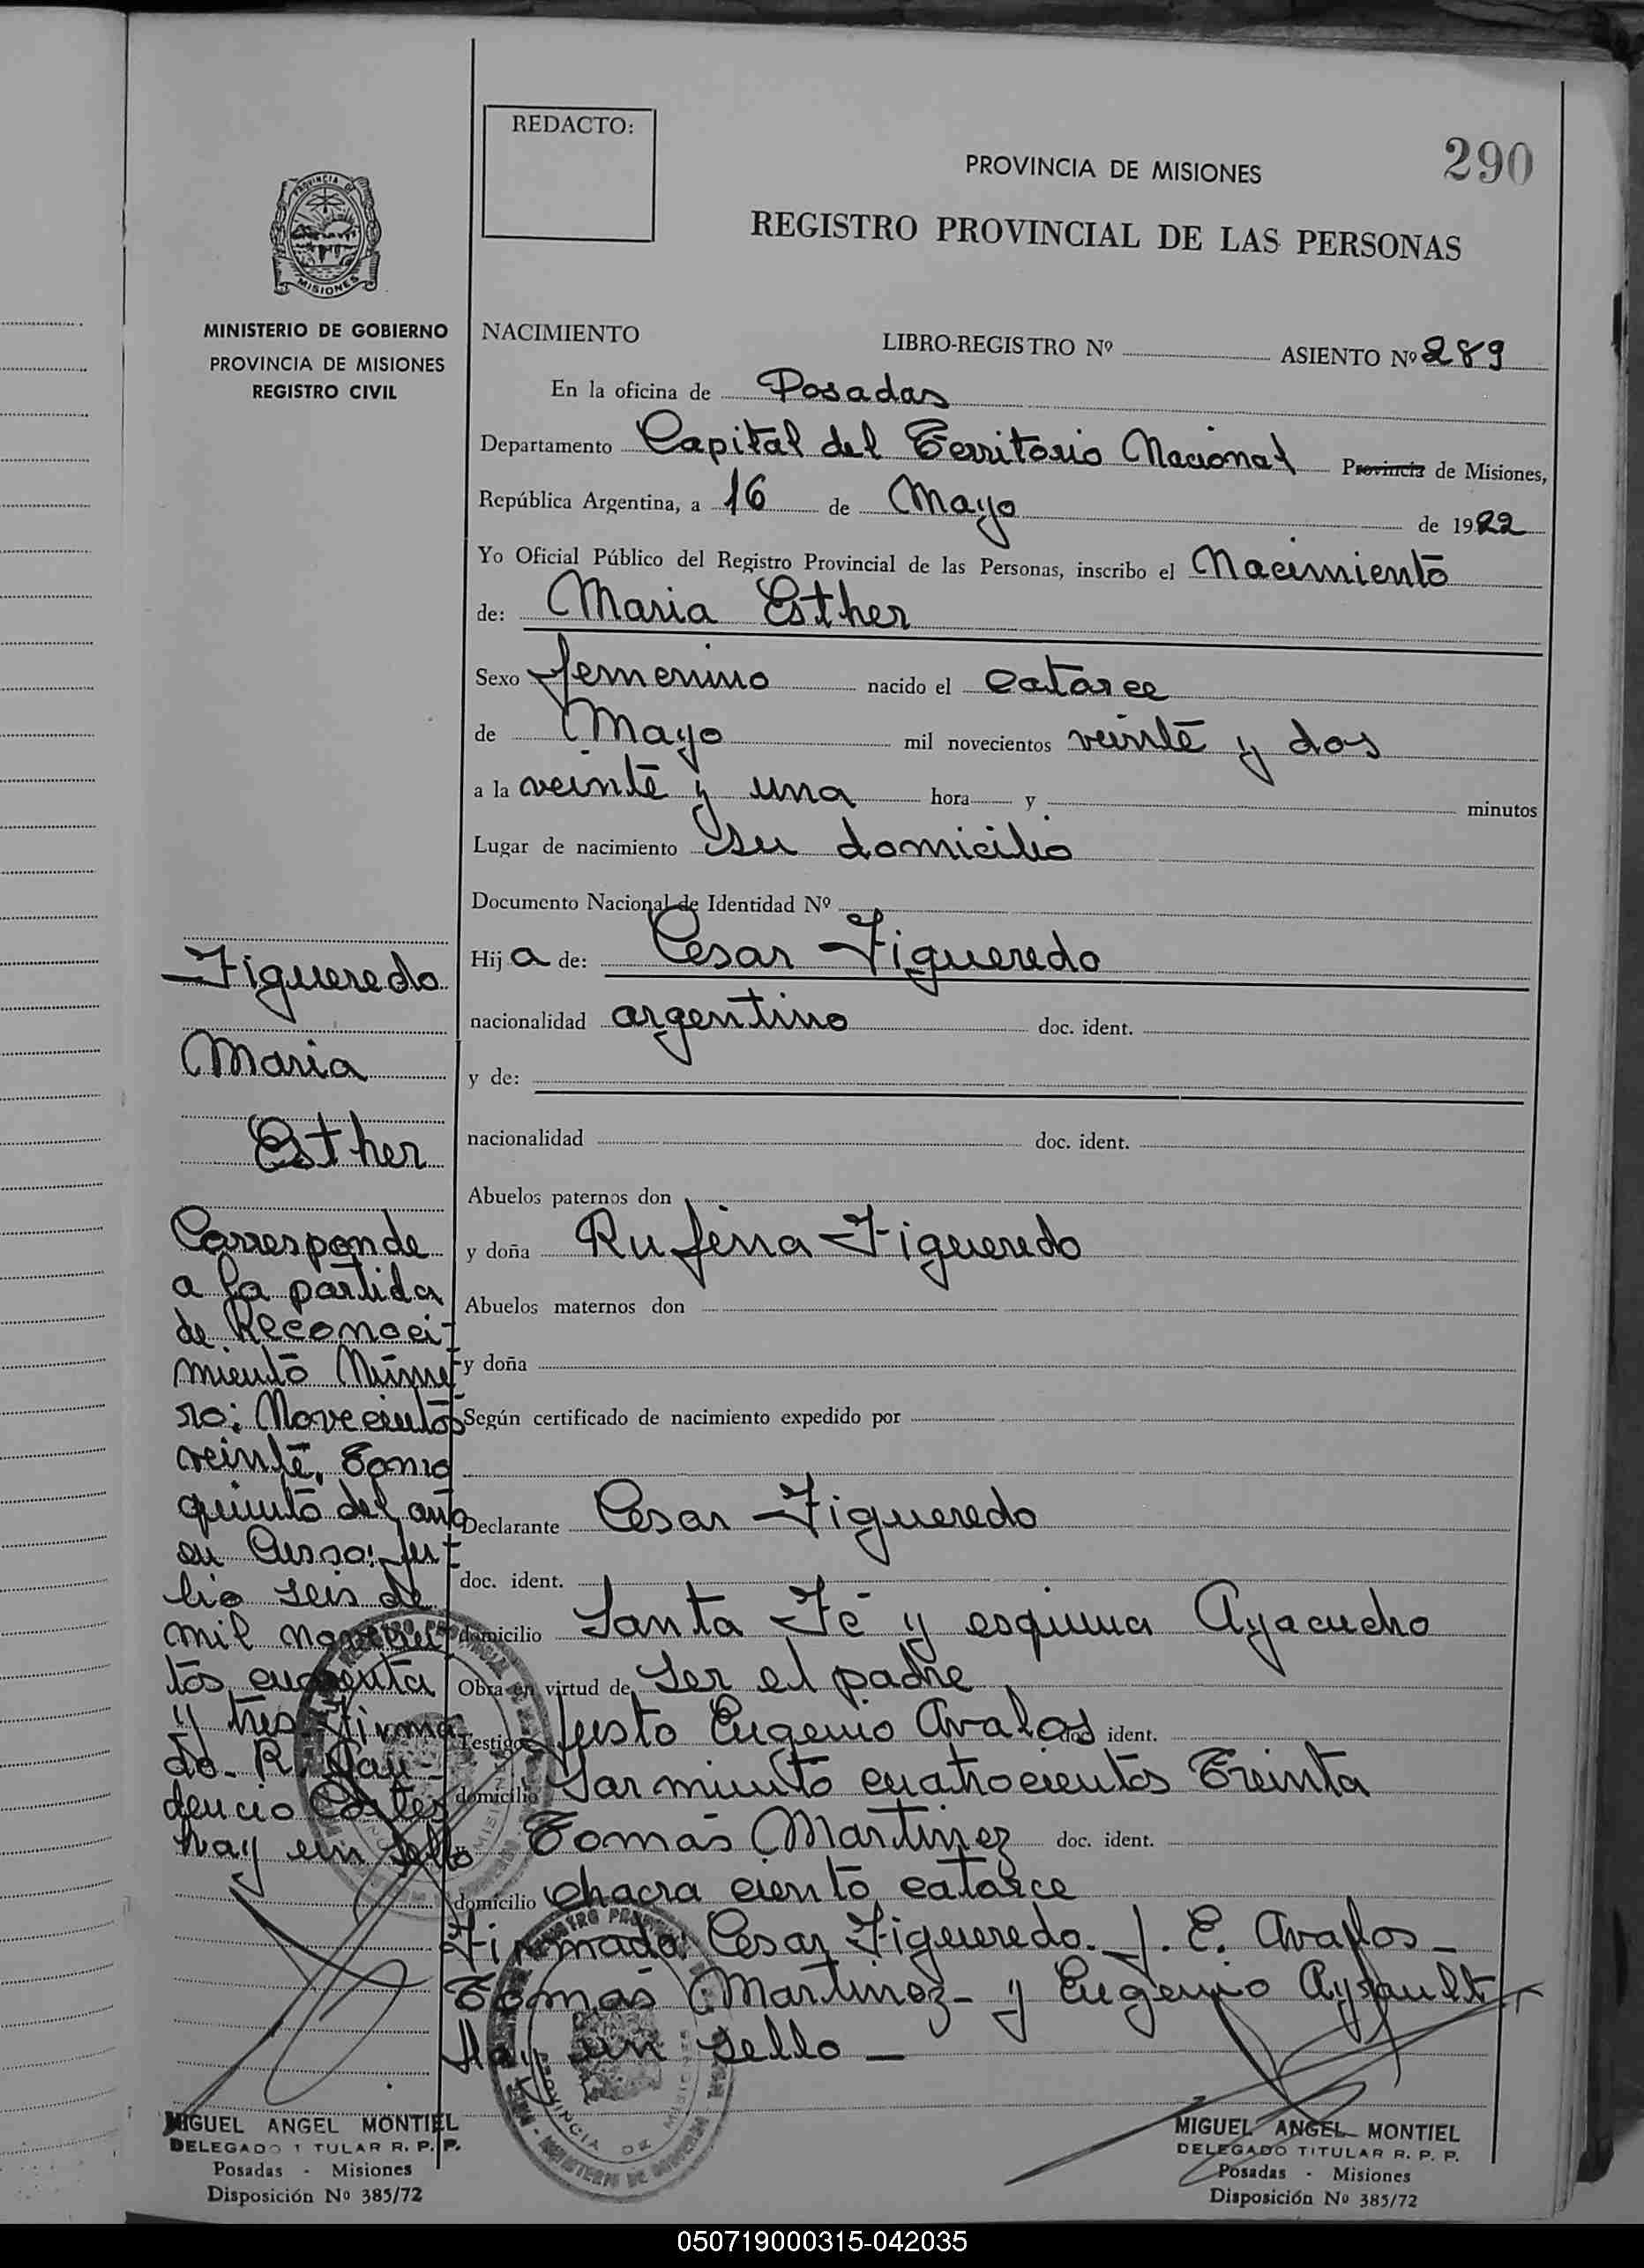 REDACTO:
290
PROVINCIA DE MISIONES
REGISTRO PROVINCIAL DE LAS PERSONAS
PROVINCIA DE
MISIONES
MINISTERIO DE GOBIERNO
PROVINCIA DE MISIONES
REGISTRO CIVIL
NACIMIENTO LIBRO-REGISTRO Nº ASIENTO Nº 289
En la oficina de Posadas
Departamento Capital del Territorio Nacional Provincia de Misiones,
República Argentina, a 16 de Mayo de 1922
Yo Oficial Público del Registro Provincial de las Personas, inscribo el Nacimiento
de: Maria Esther
Sexo femenino nacido el catorce
de Mayo mil novecientos veinte y dos
a la veinte y una hora y minutos
Lugar de nacimiento su domicilio
Documento Nacional de Identidad Nº
Hij a de: Cesar Figueredo
nacionalidad argentino doc. ident.
y de:
nacionalidad doc. ident.
Abuelos paternos don
y doña Rufina Figueredo
Abuelos maternos don
y doña
Según certificado de nacimiento expedido por
Declarante Cesar Figueredo
doc. ident.
domicilio Santa Fé y esquina Ayacucho
Obra en virtud de ser el padre
Testigos Justo Eugenio Avalos doc ident.
domicilio Sarmiento cuatrocientos Treinta
Tomás Martinez doc. ident.
domicilio chacra ciento catorce
Firmado: Cesar Figueredo. J. E. Avalos -
Tomás Martinez - y Eugenio
Hay un sello -
Figueredo
Maria
Esther
Corresponde
a la partida
de Reconoci-
miento Núme-
ro: Novecientos
veinte, Tomo
quinto del año
en Curso: Ju-
lio seis de
mil novecien
tos cuarenta
y tres Firma
do. R. Gau-
dencio Cortes
hay un sello
MIGUEL ANGEL MONTIEL
DELEGADO TITULAR R. P. P.
Posadas - Misiones
Disposición Nº 385/72
MIGUEL ANGEL MONTIEL
DELEGADO TITULAR R. P. P.
Posadas - Misiones
Disposición Nº 385/72
050719000315-042035